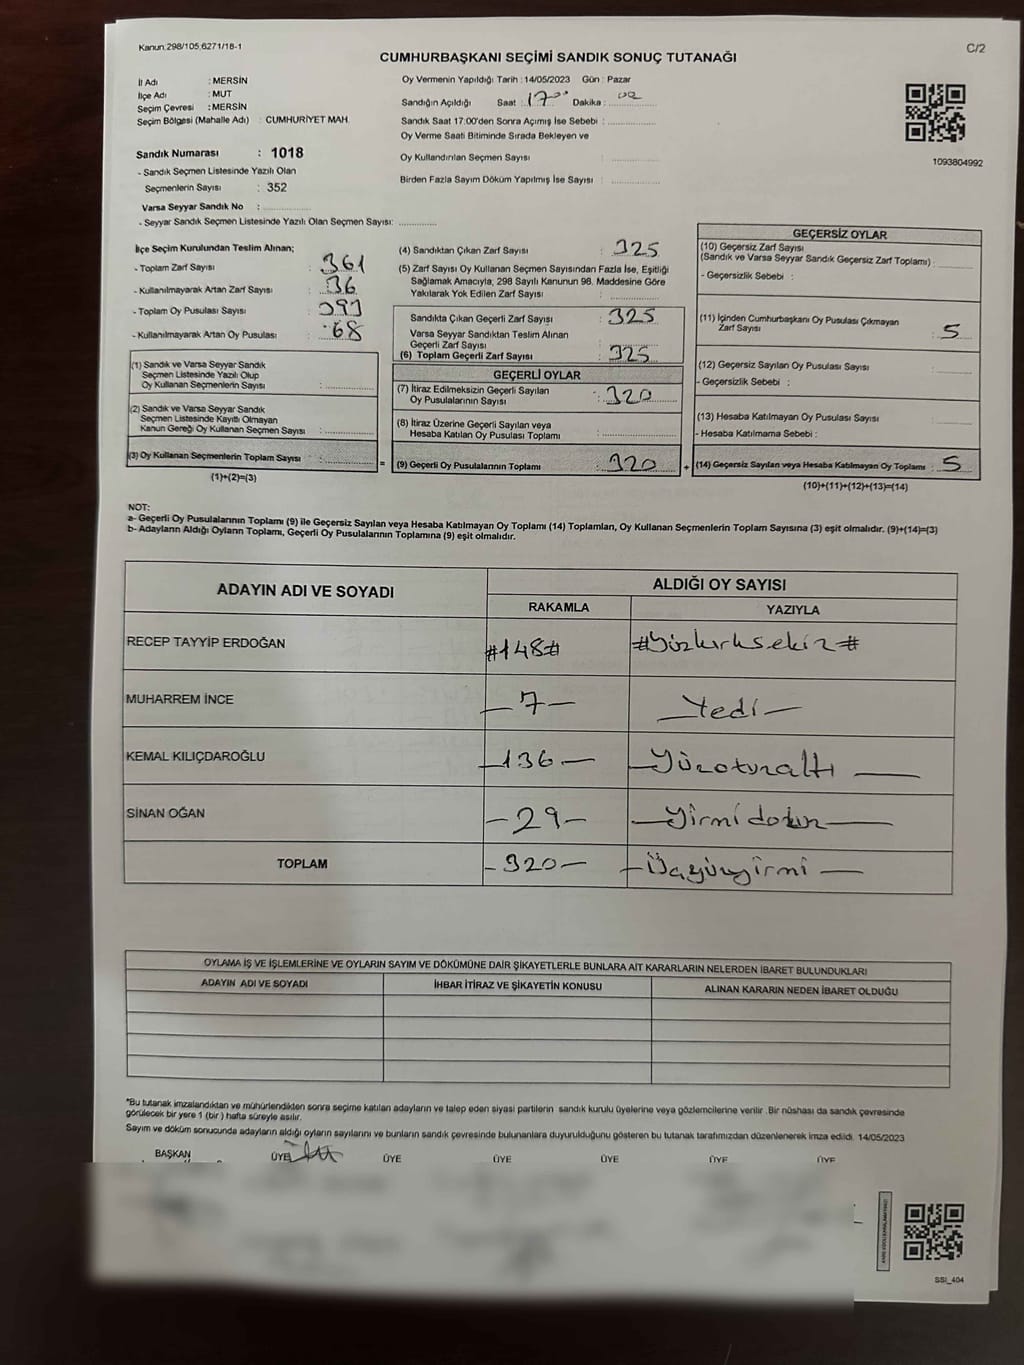 Kanun:298/105,6271/18-1
C/2
CUMHURBAŞKANI SEÇİMİ SANDIK SONUÇ TUTANAĞI
İl Adı : MERSİN
İlçe Adı : MUT
Seçim Çevresi : MERSİN
Seçim Bölgesi (Mahalle Adı) : CUMHURİYET MAH.
Sandık Numarası : 1018
- Sandık Seçmen Listesinde Yazılı Olan
Seçmenlerin Sayısı : 352
Varsa Seyyar Sandık No :
- Seyyar Sandık Seçmen Listesinde Yazılı Olan Seçmen Sayısı:
Oy Vermenin Yapıldığı Tarih : 14/05/2023 Gün : Pazar
Sandığın Açıldığı Saat : 17 00 Dakika : 00
Sandık Saat 17.00'den Sonra Açımış İse Sebebi :
Oy Verme Saati Bitiminde Sırada Bekleyen ve
Oy Kullandırılan Seçmen Sayısı :
Birden Fazla Sayım Döküm Yapılmış İse Sayısı :
1093804992
İlçe Seçim Kurulundan Teslim Alınan;
- Toplam Zarf Sayısı : 361
- Kullanılmayarak Artan Zarf Sayısı : 36
- Toplam Oy Pusulası Sayısı : 393
- Kullanılmayarak Artan Oy Pusulası : 68
(1) Sandık ve Varsa Seyyar Sandık
Seçmen Listesinde Yazılı Olup
Oy Kullanan Seçmenlerin Sayısı :
(2) Sandık ve Varsa Seyyar Sandık
Seçmen Listesinde Kayıtlı Olmayan
Kanun Gereği Oy Kullanan Seçmen Sayısı :
(3) Oy Kullanan Seçmenlerin Toplam Sayısı :
(1)+(2)=(3)
(4) Sandıktan Çıkan Zarf Sayısı : 325
(5) Zarf Sayısı Oy Kullanan Seçmen Sayısından Fazla İse, Eşitliği
Sağlamak Amacıyla, 298 Sayılı Kanunun 98. Maddesine Göre
Yakılarak Yok Edilen Zarf Sayısı :
Sandıkta Çıkan Geçerli Zarf Sayısı : 325
Varsa Seyyar Sandıktan Teslim Alınan
Geçerli Zarf Sayısı :
(6) Toplam Geçerli Zarf Sayısı : 325
GEÇERLİ OYLAR
(7) İtiraz Edilmeksizin Geçerli Sayılan
Oy Pusulalarının Sayısı : 320
(8) İtiraz Üzerine Geçerli Sayılan veya
Hesaba Katılan Oy Pusulası Toplamı :
= (9) Geçerli Oy Pusulalarının Toplamı : 320 +
GEÇERSİZ OYLAR
(10) Geçersiz Zarf Sayısı
(Sandık ve Varsa Seyyar Sandık Geçersiz Zarf Toplamı) :
- Geçersizlik Sebebi :
(11) İçinden Cumhurbaşkanı Oy Pusulası Çıkmayan
Zarf Sayısı : 5
(12) Geçersiz Sayılan Oy Pusulası Sayısı :
- Geçersizlik Sebebi :
(13) Hesaba Katılmayan Oy Pusulası Sayısı :
- Hesaba Katılmama Sebebi :
(14) Geçersiz Sayılan veya Hesaba Katılmayan Oy Toplamı : 5
(10)+(11)+(12)+(13)=(14)
NOT:
a- Geçerli Oy Pusulalarının Toplamı (9) ile Geçersiz Sayılan veya Hesaba Katılmayan Oy Toplamı (14) Toplamları, Oy Kullanan Seçmenlerin Toplam Sayısına (3) eşit olmalıdır. (9)+(14)=(3)
b- Adayların Aldığı Oyların Toplamı, Geçerli Oy Pusulalarının Toplamına (9) eşit olmalıdır.
ADAYIN ADI VE SOYADI ALDIĞI OY SAYISI
RAKAMLA YAZIYLA
RECEP TAYYİP ERDOĞAN #148# #Yüzkırksekiz#
MUHARREM İNCE - 7 - - Yedi -
KEMAL KILIÇDAROĞLU - 136 - - Yüzotuzaltı -
SİNAN OĞAN - 29 - - Yirmidokuz -
TOPLAM - 320 - - Üçyüzyirmi -
OYLAMA İŞ VE İŞLEMLERİNE VE OYLARIN SAYIM VE DÖKÜMÜNE DAİR ŞİKAYETLERLE BUNLARA AİT KARARLARIN NELERDEN İBARET BULUNDUKLARI
ADAYIN ADI VE SOYADI İHBAR İTİRAZ VE ŞİKAYETİN KONUSU ALINAN KARARIN NEDEN İBARET OLDUĞU
*Bu tutanak imzalandıktan ve mühürlendikten sonra seçime katılan adayların ve talep eden siyasi partilerin sandık kurulu üyelerine veya gözlemcilerine verilir .Bir nüshası da sandık çevresinde
görülecek bir yere 1 (bir ) hafta süreyle asılır.
Sayım ve döküm sonucunda adayların aldığı oyların sayılarını ve bunların sandık çevresinde bulunanlara duyurulduğunu gösteren bu tutanak tarafımızdan düzenlenerek imza edildi. 14/05/2023
BAŞKAN ÜYE ÜYE ÜYE ÜYE ÜYE ÜYE
SSI_404